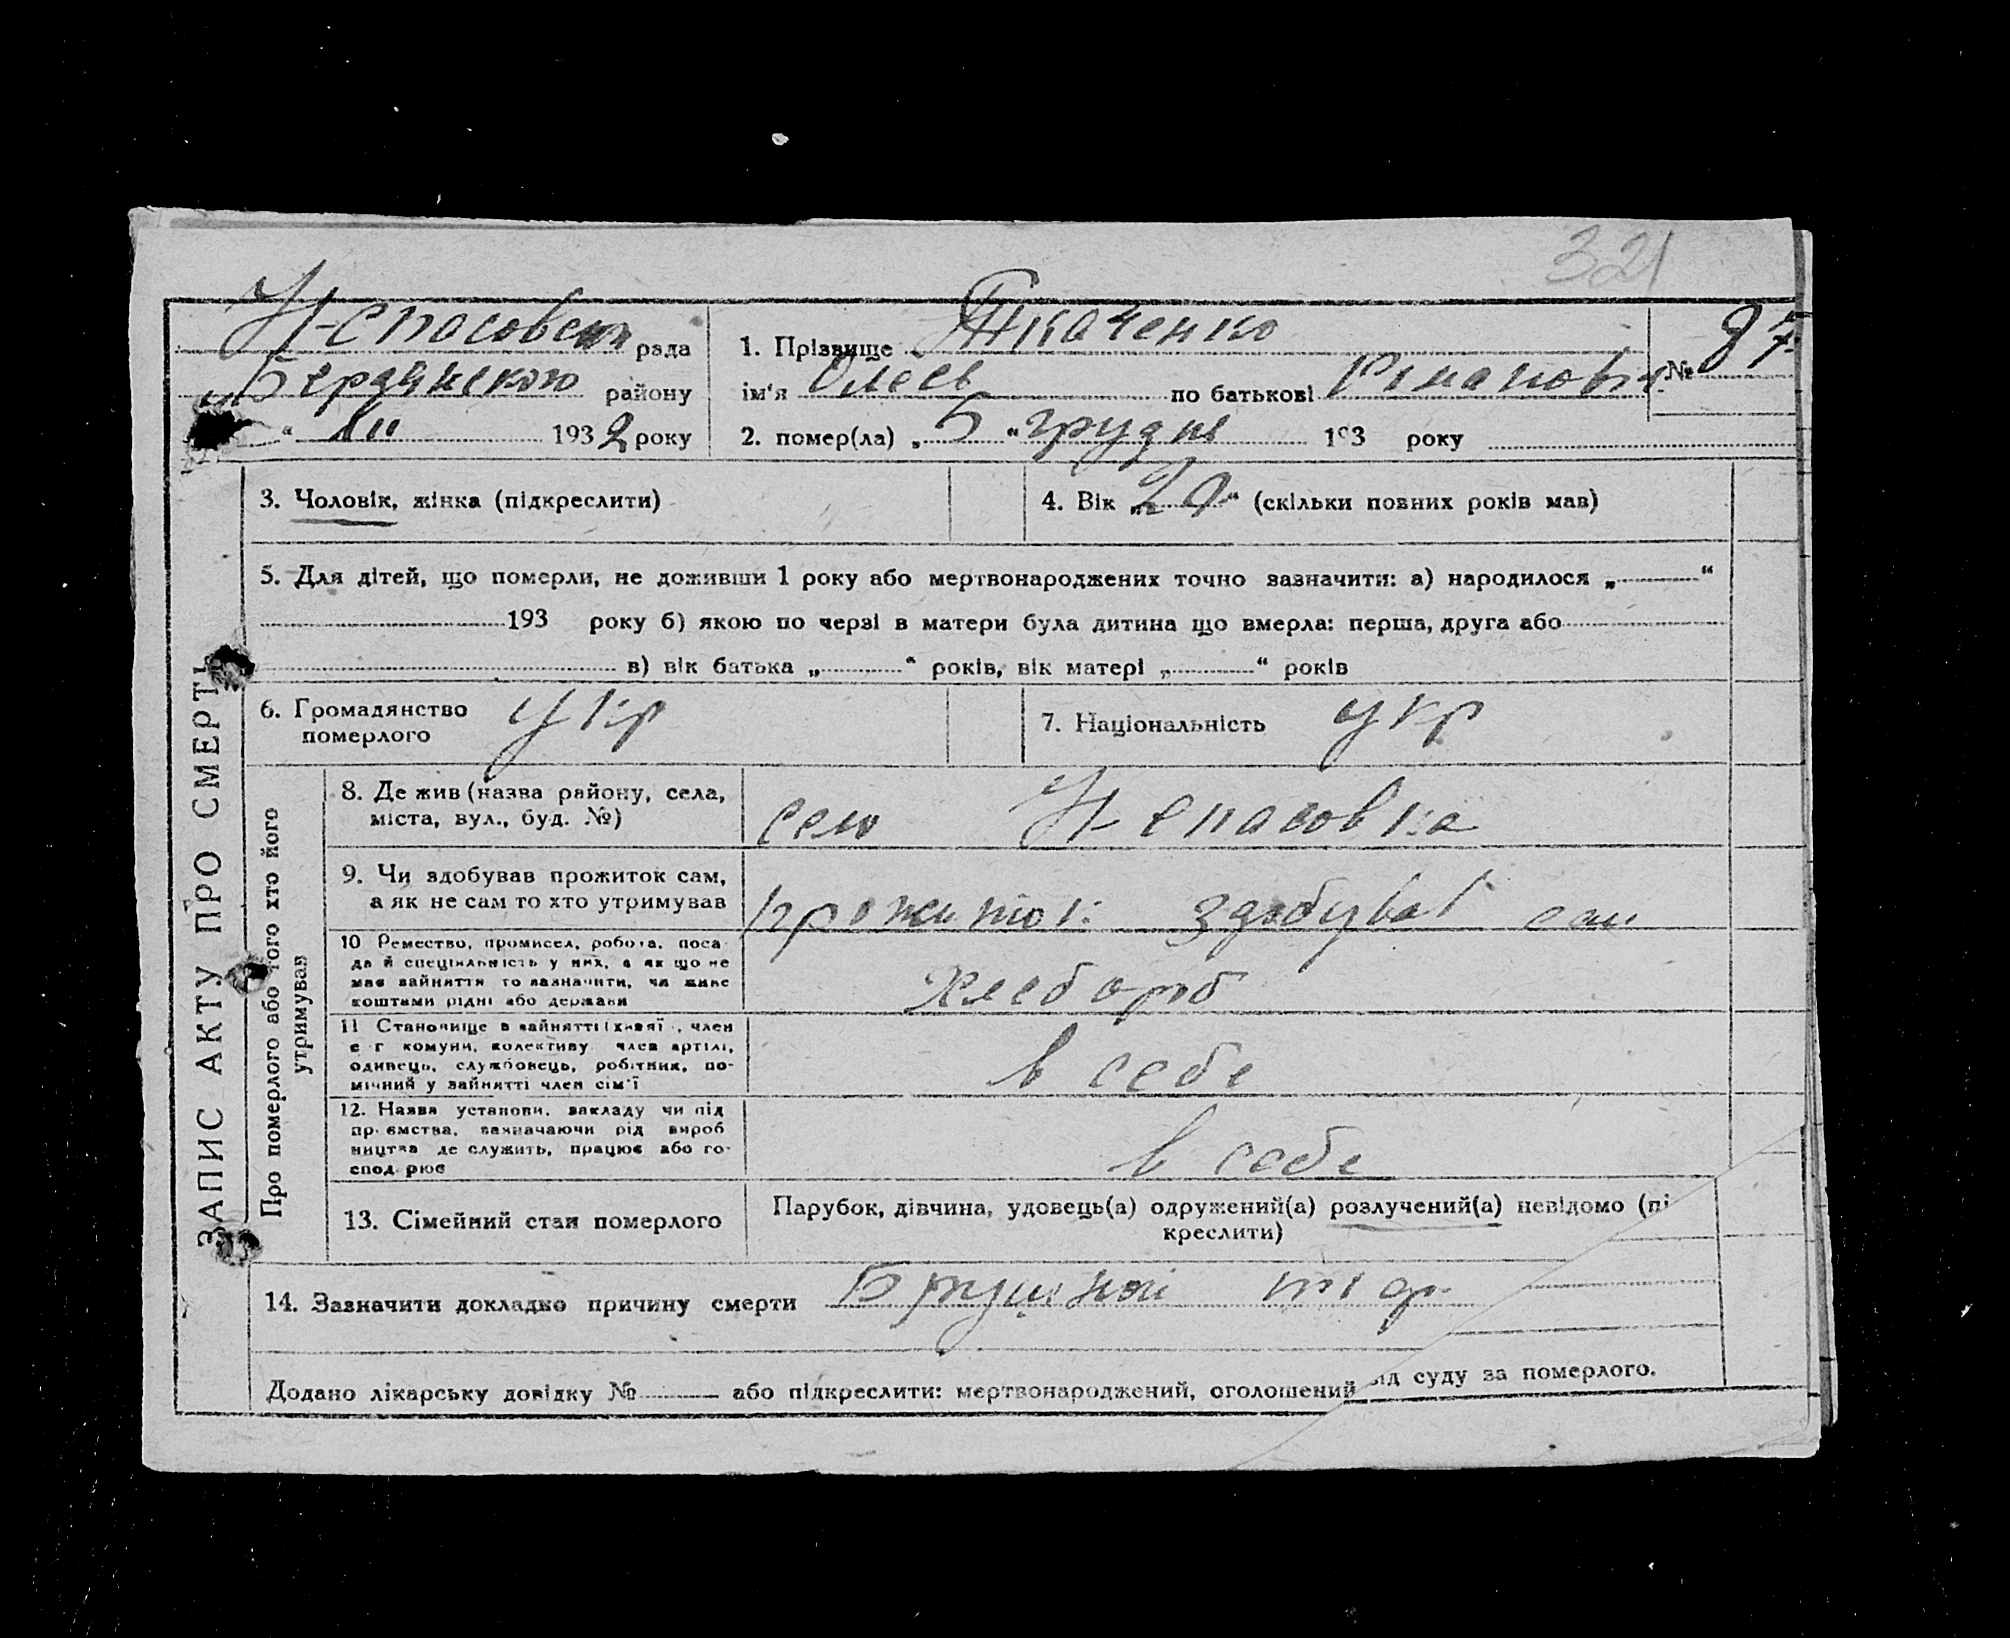 321
Н-Спасовськ рада
Бердянского району
" XII 1932 року
1. Прізвище Ткаченко
ім'я Олесь по батькові Романович
№ 87
2. помер(ла) „ 5 “ грудня 193 року
3. Чоловік, жінка (підкреслити)
4. Вік „ “ (скільки повних років мав)
5. Для дітей, що померли, не доживши 1 року або мертвонароджених точно зазначити: а) народилося „ “
193 року б) якою по черзі в матери була дитина що вмерла: перша, друга або
в) вік батька „ “ років, вік матері „ “ років
6. Громадянство
померлого
укр
7. Національність укр
ЗАПИС АКТУ ПРО СМЕРТЬ
Про померлого або того хто його
утримував
8. Де жив (назва району, села,
міста, вул., буд. №)
село Н-Спасовка
9. Чи здобував прожиток сам,
а як не сам то хто утримував
прожиток здобував сам
10 Ремество, промисел, робота, поса-
да й спеціяльність у них, а як що не
має зайняття то зазначити, чи живе
коштами рідні або держави
хлебороб
11 Становище в зайнятті (хазяї, член
с г комуни, колективу член артілі,
одинець, службовець, робітник, по-
мічний у зайнятті член сім'ї
в себе
12. Назва установи, закладу чи під
приємства, зазначаючи рід вироб
ництва де служить, працює або го-
сподарює
в себе
13. Сімейний стан померлого
Парубок, дівчина, удовець(а) одружений(а) розлучений(а) невідомо (пі
креслити)
14. Зазначити докладно причину смерти Брушной тіф
Додано лікарську довідку № або підкреслити: мертвонароджений, оголошений ід суду за померлого.